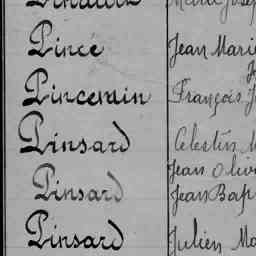 Pince Jean Mari
Pincemin François J
Pinsard Celestin M
Jean Olivi
Pinsard Jean Bap
Pinsard Julien Ma